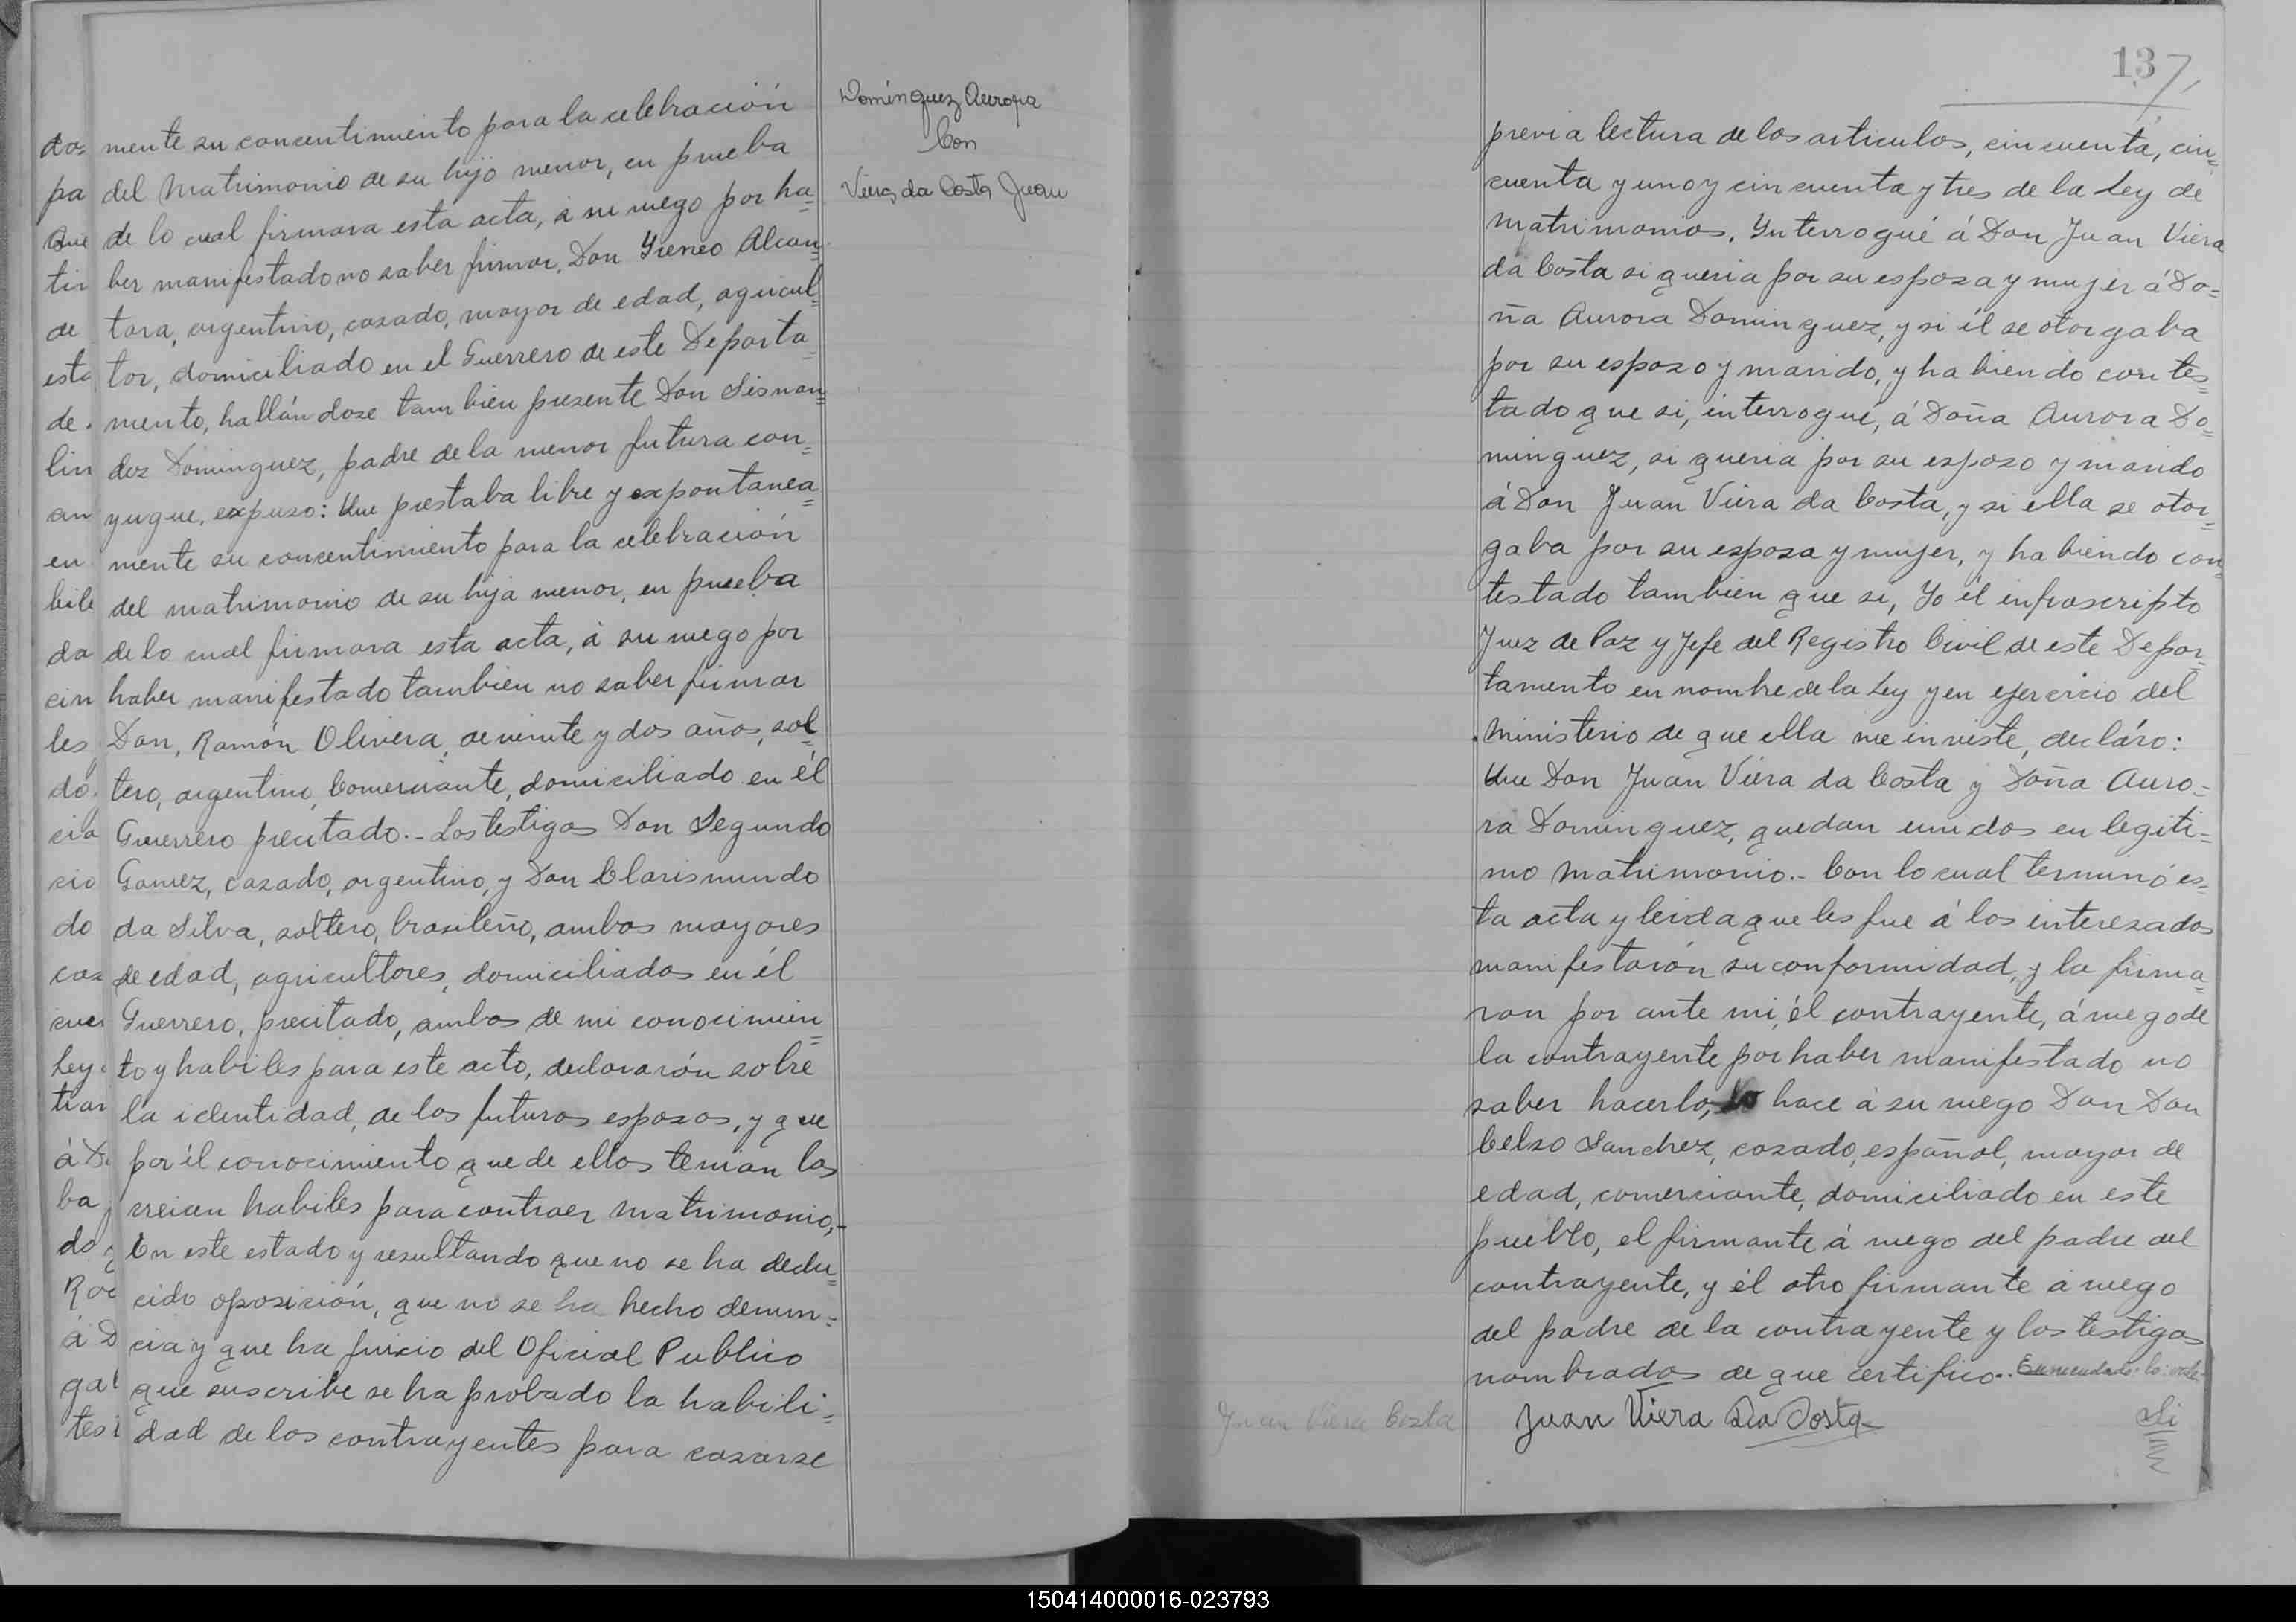 do=
pa
Que
tin
de
esta
de
lin
an
en
bile
da
cin
les
do
cia
cio
do
cas
cuen
Ley
trar
á D
ba
do
Roc
á D
gab
tes
mente su concentimiento para la celebración
del Matrimonio de su hijo menor, en prueba
de lo cual firmara esta acta, á su ruego por ha=
ber manifestado no saber firmar, Don Yreneo Alcan=
tara, argentino, casado, mayor de edad, agricul=
tor, domiciliado en el Guerrero de este Departa=
mento, hallándose tambien presente Don Sisnan=
dez Dominguez, padre de la menor futura con=
yugue, expuso: Que prestaba libre y expontanea=
mente su concentimiento para la celebración
del matrimonio de su hija menor, en prueba
de lo cual firmara esta acta, á su ruego por
haber manifestado tambien no saber firmar
Don, Ramón Olivera, de veinte y dos años, sol=
tero, argentino, Comerciante, domiciliado en él
Guerrero precitado.- Los testigos Don Segundo
Gamez, casado, argentino, y Don Clarismundo
da Silva, soltero, brasileño, ambos mayores
de edad, agricultores, domiciliados en él
Guerrero, precitado, ambos de mi conocimien=
to y habiles para este acto, declararón sobre
la identidad, de los futuros esposos, y que
por él conocimiento que de ellos tenian los
creian habiles para contraer matrimonio,-
En este estado y resultando que no se ha dedu=
cido oposición, que no se ha hecho denun=
cia y que ha juicio del Oficial Publico
que suscribe se ha probado la habili=
dad de los contrayentes para casarse
Dominguez Aurora
Con
Viera da Costa Juan
137
previa lectura de los articulos, cincuenta, cin=
cuenta y uno y cincuenta y tres de la Ley de
Matrimonios, Ynterrogué á Don Juan Viera
da Costa si queria por su esposa y mujer á Do=
ña Aurora Dominguez, y si él se otorgaba
por su esposo y marido, y habiendo contes=
tado que si, interrogué, á Doña Aurora Do=
minguez, si queria por su esposo y marido
á Don Juan Viera da Costa, y si ella se otor=
gaba por su esposa y mujer, y habiendo con=
testado tambien que si, Yo él infrascripto
Juez de Paz y Jefe del Registro Civil de este Depar=
tamento en nombre de la Ley y en ejercicio del
Ministerio de que ella me inviste, decláro:
Que Don Juan Viera da Costa y Doña Auro=
ra Dominguez, quedan unidos en legiti=
mo Matrimonio.- Con lo cual terminó es=
ta acta y leida que les fue á los interesados
manifestarón su conformidad, y la firma=
ron por ante mi, él contrayente, á ruego de
la contrayente por haber manifestado no
saber hacerlo, lo hace á su ruego Don Don
Celso Sanchez, casado, español, mayor de
edad, comerciante, domiciliado en este
pueblo, el firmante á ruego del padre del
contrayente, y él otro firmante á ruego
del padre de la contrayente y los testigos
nombrados de que certifico.- Enmendado: lo: vale-
Juan Viera Costa
Juan Viera Da Costa
150414000016-023793